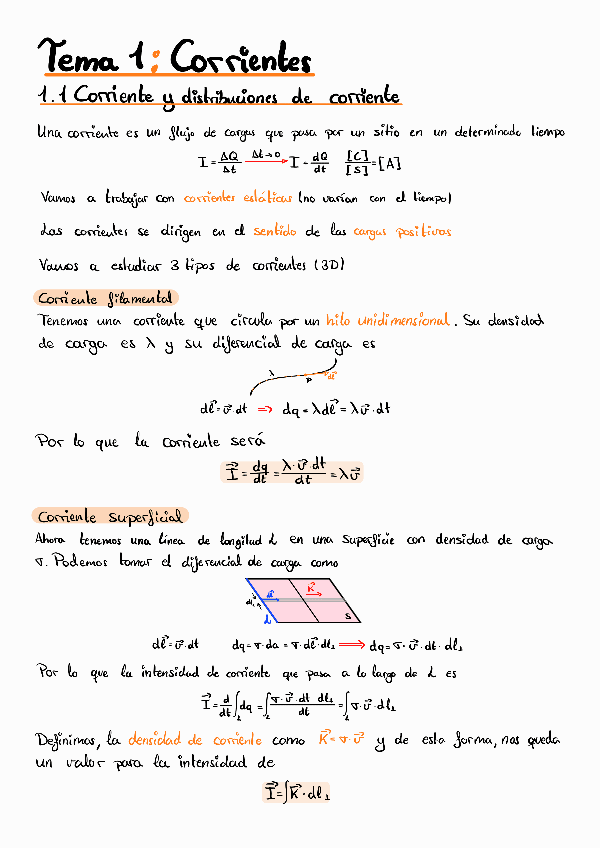 Tema 1: Corrientes
1.1 Corriente y distribuciones de corriente
Una corriente es un flujo de cargas que pasa por un sitio en un determinado tiempo
I = ΔQ/Δt —Δt→0→ I = dQ/dt [C]/[S] = [A]
Vamos a trabajar con corrientes estáticas (no varían con el tiempo)
Las corrientes se dirigen en el sentido de las cargas positivas
Vamos a estudiar 3 tipos de corrientes (3D)
Corriente filamental
Tenemos una corriente que circula por un hilo unidimensional. Su densidad
de carga es λ y su diferencial de carga es
λ P dl⃗
dl⃗ = v⃗·dt ⇒ dq = λdl⃗ = λv⃗·dt
Por lo que la corriente será
I⃗ = dq/dt = λ·v⃗·dt/dt = λv⃗
Corriente Superficial
Ahora tenemos una línea de longitud L en una superficie con densidad de carga
σ. Podemos tomar el diferencial de carga como
dl⊥ dl⃗ K⃗ L S
dl⃗ = v⃗·dt dq = σ·da = σ·dl⃗·dl⊥ ⟹ dq = σ·v⃗·dt·dl⊥
Por lo que la intensidad de corriente que pasa a lo largo de L es
I⃗ = d/dt ∫_L dq = ∫_L σ·v⃗·dt dl⊥/dt = ∫_L σ·v⃗·dl⊥
Definimos, la densidad de corriente como K⃗ = σ·v⃗ y de esta forma, nos queda
un valor para la intensidad de
I⃗ = ∫K⃗·dl⊥